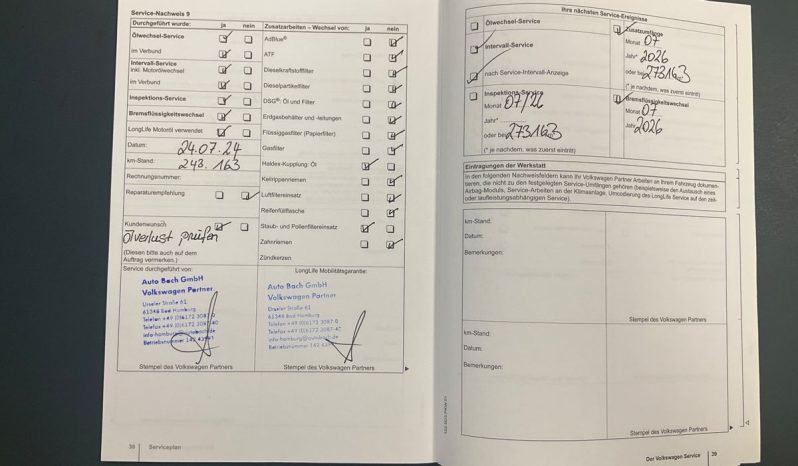 Service-Nachweis 9
Durchgeführt wurde: ja nein
Ölwechsel-Service
im Verbund
Intervall-Service
inkl. Motorölwechsel
im Verbund
Inspektions-Service
Bremsflüssigkeitswechsel
LongLife Motoröl verwendet
Datum: 24.07.24
km-Stand: 243.163
Rechnungsnummer:
Reparaturempfehlung
Kundenwunsch
Ölverlust prüfen
(Diesen bitte auch auf dem
Auftrag vermerken.)
Service durchgeführt von:
Auto Bach GmbH
Volkswagen Partner
Urseler Straße 61
61348 Bad Homburg
Telefon +49 (0)6172 3087-0
Telefax +49 (0)6172 3087-40
info-homburg@autobach.de
Betriebsnummer 142
Stempel des Volkswagen Partners
Zusatzarbeiten – Wechsel von: ja nein
AdBlue®
ATF
Dieselkraftstofffilter
Dieselpartikelfilter
DSG®: Öl und Filter
Erdgasbehälter und -leitungen
Flüssiggasfilter (Papierfilter)
Gasfilter
Haldex-Kupplung: Öl
Keilrippenriemen
Luftfiltereinsatz
Reifenfüllflasche
Staub- und Pollenfiltereinsatz
Zahnriemen
Zündkerzen
LongLife Mobilitätsgarantie:
Auto Bach GmbH
Volkswagen Partner
Urseler Straße 61
61348 Bad Homburg
Telefon +49 (0)6172 3087-0
Telefax +49 (0)6172 3087-40
info-homburg@autobach.de
Betriebsnummer 142
Stempel des Volkswagen Partners
38 Serviceplan
Ihre nächsten Service-Ereignisse
Ölwechsel-Service
Intervall-Service
nach Service-Intervall-Anzeige
Inspektions-Service
Monat 07/26
Jahr*
oder bei 273163
(* je nachdem, was zuerst eintritt)
Zusatzumfänge
Monat 07
Jahr* 2026
oder bei 273163
(* je nachdem, was zuerst eintritt)
Bremsflüssigkeitswechsel
Monat 07
Jahr 2026
Eintragungen der Werkstatt
In den folgenden Nachweisfeldern kann Ihr Volkswagen Partner Arbeiten an Ihrem Fahrzeug dokumen-
tieren, die nicht zu den festgelegten Service-Umfängen gehören (beispielsweise den Austausch eines
Airbag-Moduls, Service-Arbeiten an der Klimaanlage, Umcodierung des LongLife Service auf den zeit-
oder laufleistungsabhängigen Service).
km-Stand:
Datum:
Bemerkungen:
Stempel des Volkswagen Partners
km-Stand:
Datum:
Bemerkungen:
Stempel des Volkswagen Partners
Der Volkswagen Service 39